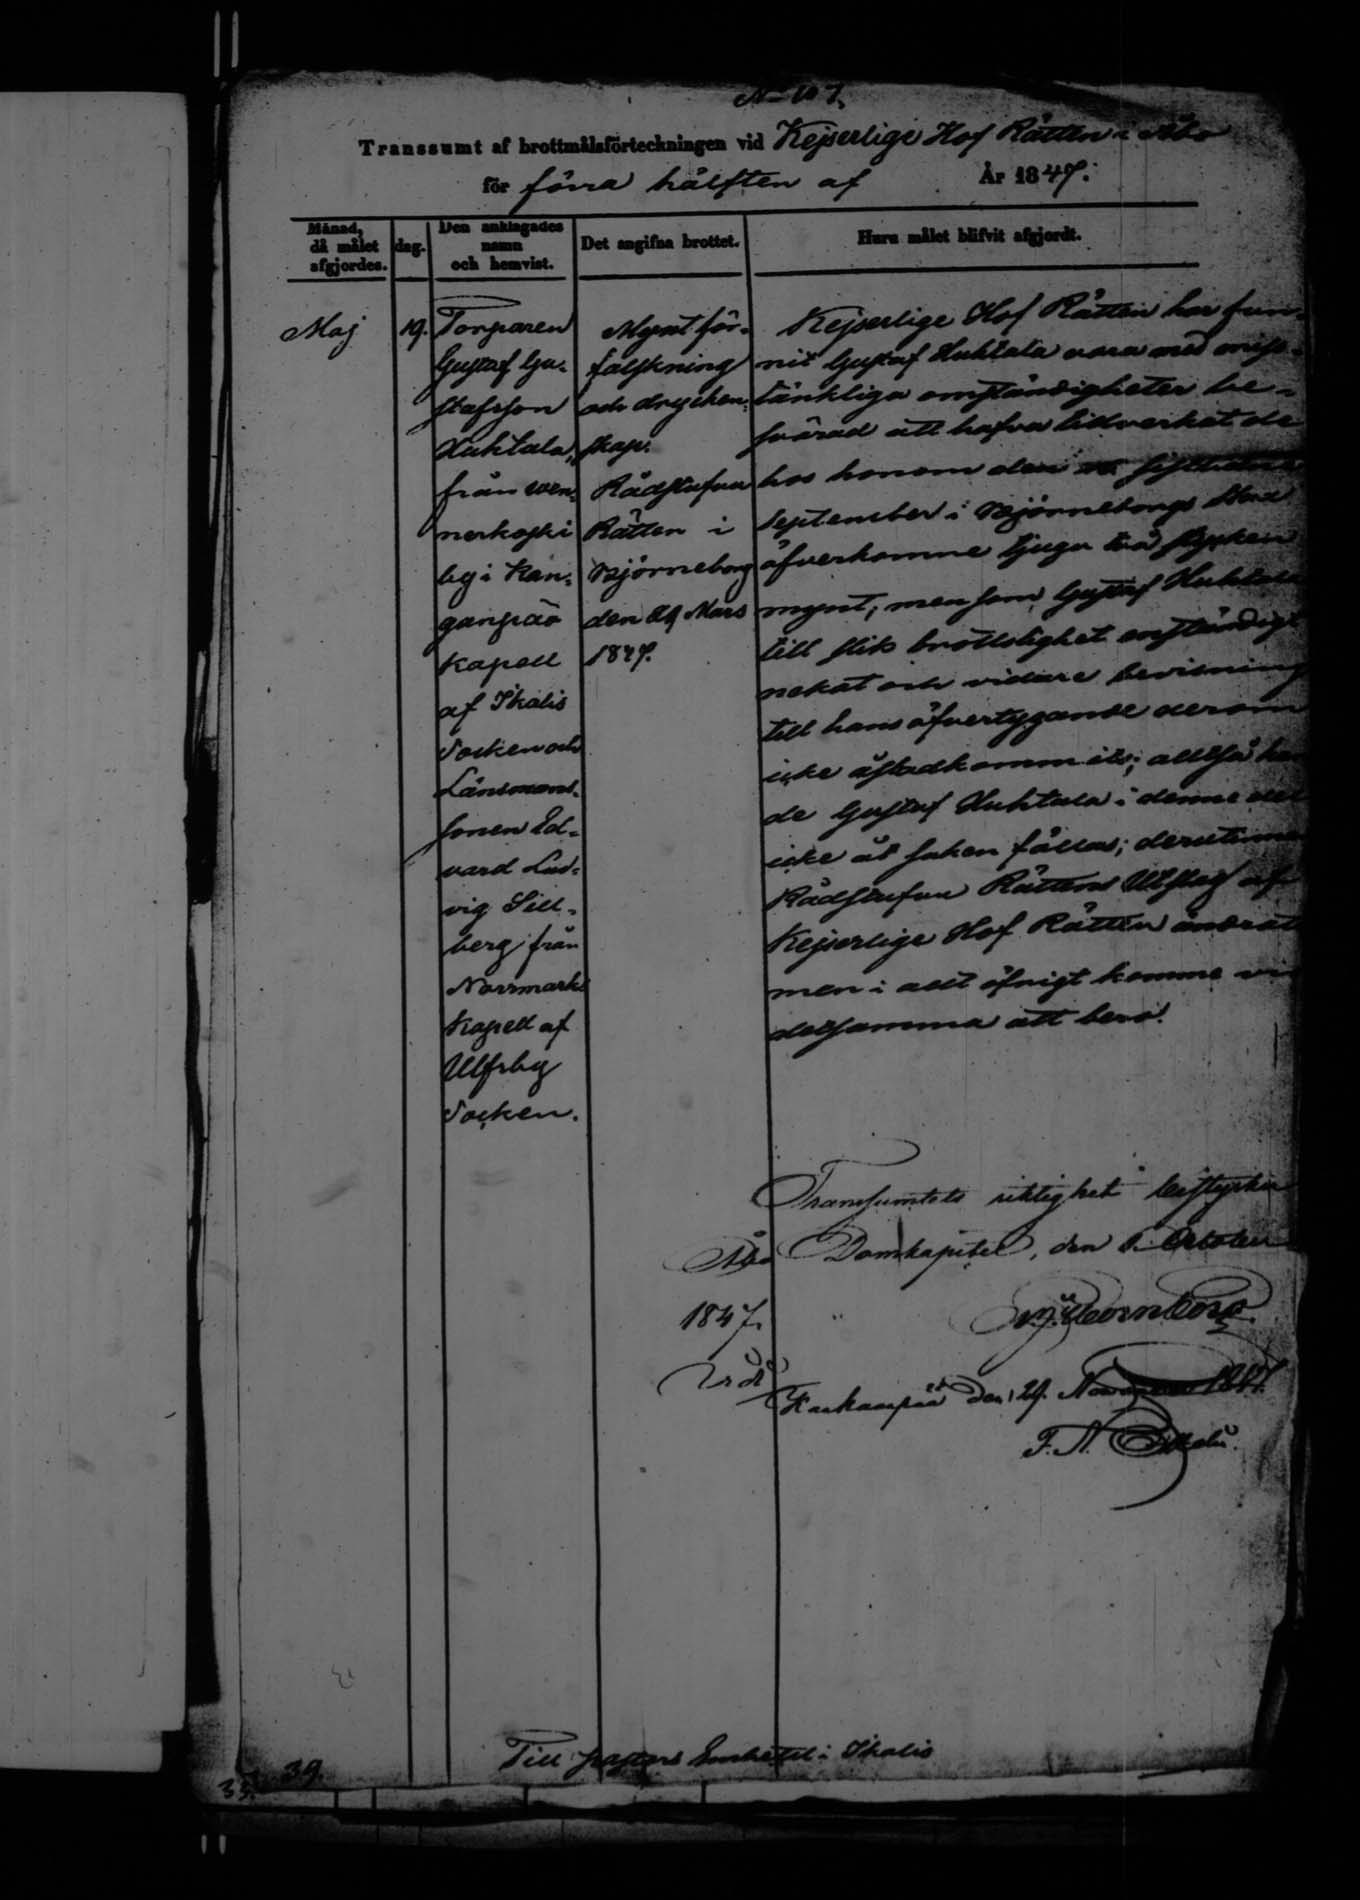 No 107.
Transsumt af brottmålsförteckningen vid Kejserlige Hof Rätten i Åbo
för förra hälften af År 1847.
Månad, då målet afgjordes.
dag.
Den anklagades namn och hemvist.
Det angifna brottet.
Huru målet blifvit afgjordt.
Maj
19.
Torparen
Gustaf Gu-
stafsson
Huhtala,
från Wen-
nerkoski
by i Kan-
ganpää
Kapell
af Ikalis
Socken och
Länsmans-
sonen Ed-
vard Lud-
vig Sill-
berg från
Norrmarks
Kapell af
Ulfsby
Socken.
Mynt för-
falskning
och drycken-
skap.
Rådstufvu
Rätten i
Björneborg
den 29 Mars
1847.
Kejserlige Hof Rätten har fun-
nit Gustaf Huhtala vara med miss-
tänkliga omständigheter be-
svärad att hafva tillverkat de
hos honom den
September i Björneborgs Stad
öfverkomne tjugu två stycken
mynt; men som Gustaf Huhtala
till slik brottslighet enständigt
nekat och vidare bevisning
till hans öfvertygande derom
icke åstadkommits; alltså
de Gustaf Huhtala i denne del
icke åt saken fällas;
Rådstufvu Rättens Utslag af
Kejserlige Hof Rätten ändrat
men i allt öfrigt komme vid
detsamma att bero.
Transumtets riktighet bestyrker
Åbo Domkapitel, den Oktober
1847.
Karkanpää den 29. 1847.
F. A.
Till pastors Embetet i Ikalis
39.